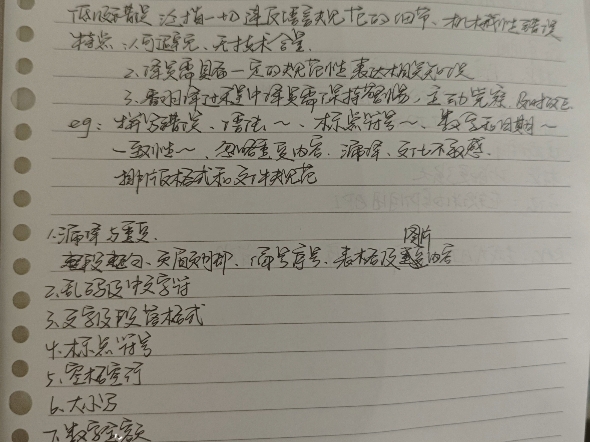 低级错误 泛指一切违反语言规范的细节、机械性错误
特点:1.可避免、无技术含量.
2.译员需具备一定的规范性表达相关知识
3.翻译过程中译员需保持警惕,主动完善,及时改正
eg:拼写错误、语法~、标点符号~、数字和日期~
一致性~、忽略重复内容、漏译、文化不敏感.
排版格式和文体规范
1.漏译与重复.
图片
整段整句、页眉页脚、编号序号、表格及重复内容
2.乱码及中文字符
3.文字及段落格式
4.标点符号
5.空格空行
6.大小写
7.数字金额